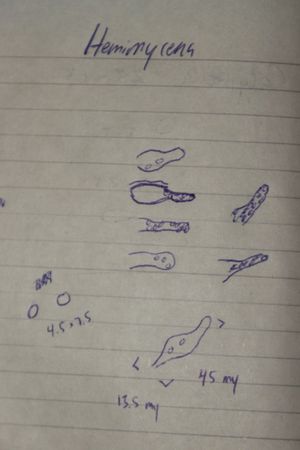 Hemimycena
4.5 x 7.5
45 my
13.5 my